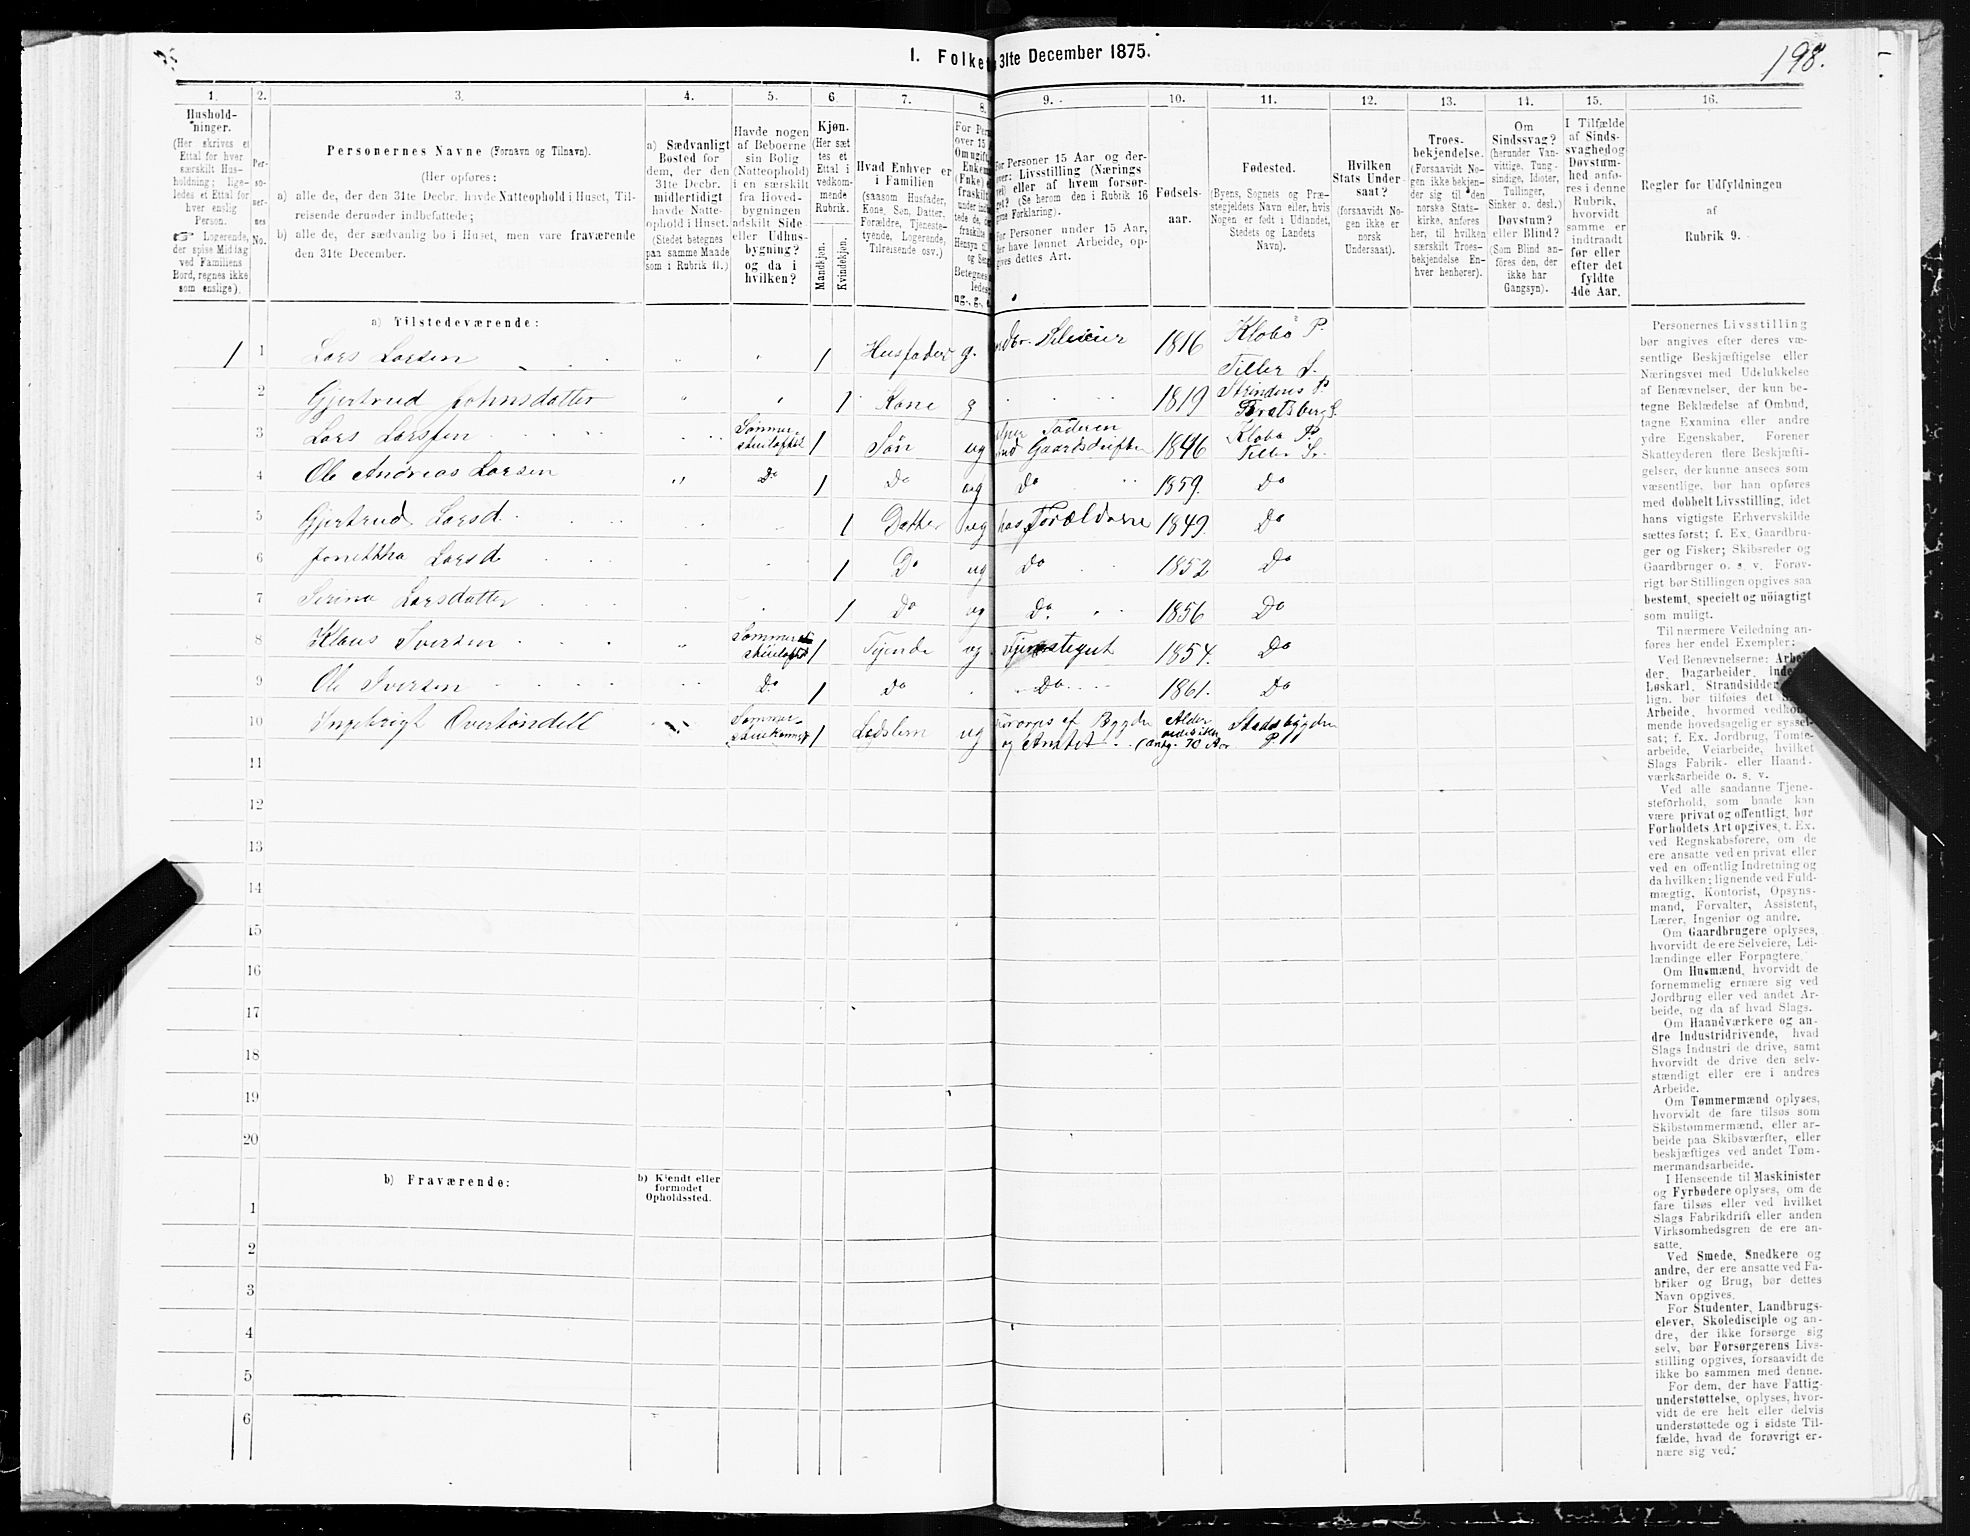 I. Folke
31te December 1875.
198.
1. 2. 3. 4. 5. 6 7. 8. 9. 10. 11. 12. 13. 14. 15. 16.
Hushold-
ninger.
(Her skrives et
Ettal for hver
særskilt Hus-
holdning; lige-
ledes et Ettal for
hver enslig
Person.
☞ Logerende,
der spise Middag
ved Familiens
Bord, regnes ikke
som enslige).
Per-
so-
ner-
nes
No.
Personernes Navne (Fornavn og Tilnavn).
(Her opføres:
a) alle de, der den 31te Decbr. havde Natteophold i Huset, Til-
reisende derunder indbefattede;
b) alle de, der sædvanlig bo i Huset, men vare fraværende
den 31te December.
a) Sædvanligt
Bosted for
dem, der den
31te Decbr.
midlertidigt
havde Natte-
ophold i Huset.
(Stedet betegnes
paa samme Maade
som i Rubrik 11.)
Havde nogen
af Beboerne
sin Bolig
(Natteophold)
i en særskilt
fra Hoved-
bygningen
adskilt Side-
eller Udhus-
bygning?
og da i
hvilken?
Kjøn.
(Her sæt
tes et
Ettal i
vedkom-
mende
Rubrik.
Mandkjøn.
Kvindekjøn.
Hvad Enhver er
i Familien
(saasom Husfader,
Kone, Søn, Datter,
Forældre, Tjeneste-
tyende, Logerende,
Tilreisende osv.)
For Personer 15 Aar og der-
over: Livsstilling (Nærings
vei) eller af hvem forsør-
get? (Se herom den i Rubrik 16
givne Forklaring).
For Personer under 15 Aar,
der have lønnet Arbeide, op-
gives dettes Art.
Fødsels-
aar.
Fødested.
(Byens, Sognets og Præ-
stegjeldets Navn eller, hvis
Nogen er født i Udlandet,
Stedets og Landets
Navn).
Hvilken
Stats Under-
saat?
(forsaavidt No-
gen ikke er
norsk
Undersaat).
Troes-
bekjendelse.
(Forsaavidt No-
gen ikke bekjen-
der sig til den
norske Stats-
kirke, anføres
her, til hvilken
særskilt Troes-
bekjendelse En-
hver henhører).
Om
Sindssvag?
(herunder Van-
vittige, Tung-
sindige, Idioter,
Tullinger,
Sinker o. desl.)
Døvstum?
eller Blind?
(Som Blind an-
føres den, der
ikke har
Gangsyn).
I Tilfælde
af Sinds-
svaghed og
Døvstum-
hed anfø-
res i denne
Rubrik,
hvorvidt
samme er
indtraadt
før eller
efter det
fyldte
4de Aar.
Regler for Udfyldningen
af
Rubrik 9.
a) Tilstedeværende:
1 1 Lars Larsen 1 Husfader g. Selveier 1816 Klæbo P. Tiller S.
2 Gjertrud Johnsdatter 1 Kone g 1819 Strindens P. Bratsberg S.
3 Lars Larssen 1 Søn ug Faderen Gaardsdriften 1846 Klæbo P. Tiller S.
4 Ole Andreas Larsen Do 1 Do ug Do 1859. Do
5 Gjertrud Larsd. 1 Datter ug hos Forældrene 1849. Do
6 Larsd 1 Do ug Do 1852 Do
7 Serina Larsdatter 1 Do ug Do. 1856 Do
8 Klaus Iversen 1 Tjende ug 1854. Do
9 Ole Iversen Do 1 Do Do 1861. Do
10 Ingebrigt 1 Lægdslem ug af Bygden og Amtet. Alder (antg. 70 Aar Stadsbygden P.
11
12
13
14
15
16
17
18
19
20
b) Fraværende:
b) Kjendt eller
formodet
Opholdssted.
1
2
3
4
5
6
Personernes Livsstilling
bør angives efter deres væ-
sentlige Beskjæftigelse eller
Næringsvei med Udelukkelse
af Benævnelser, der kun be-
tegne Beklædelse af Ombud,
tagne Examina eller andre
ydre Egenskaber. Forener
Skatteyderen flere Beskjæfti-
gelser, der kunne ansees som
væsentlige, bør han opføres
med dobbelt Livsstilling, idet
hans vigtigste Erhvervskilde
sættes først; f. Ex. Gaardbru-
ger og Fisker; Skibsreder og
Gaardbruger o. s. v. Forøv-
rigt bør Stillingen opgives saa
bestemt, specielt og nöiagtigt
som muligt.
Til nærmere Veiledning an-
føres her endel Exempler:
Ved Benævnelserne:
der, Dagarbeider,
Løskarl, Strandsidder
lign. bør tilføies det
Arbeide, hvormed
mende hovedsagelig er syssel-
sat; f. Ex. Jordbrug, Tomte-
arbeide, Veiarbeide, hvilket
Slags Fabrik- eller Haand-
værksarbeide o. s. v.
Ved alle saadanne Tjene-
steforhold, som baade kan
være privat og offentligt, bør
Forholdets Art opgives, t. Ex.
ved Regnskabsførere, om de
ere ansatte ved en privat eller
ved en offentlig Indretning og
da hvilken; lignende ved Fuld-
mægtig, Kontorist, Opsyns-
mand, Forvalter, Assistent,
Lærer, Ingeniør og andre.
Om Gaardbrugere oplyses,
hvorvidt de ere Selveiere, Lei-
lændinge eller Forpagtere.
Om Husmænd, hvorvidt de
fornemmelig ernære sig ved
Jordbrug eller ved andet Ar-
beide, og da af hvad Slags.
Om Haandværkere og an-
dre Industridrivende, hvad
Slags Industri de drive, samt
hvorvidt de drive den selv-
stændigt eller ere i andres
Arbeide.
Om Tømmermænd oplyses,
hvorvidt de fare tilsøs som
Skibstømmermænd, eller ar-
beide paa Skibsværfter, eller
beskjæftiges ved andet Tøm-
mermandsarbeide.
I Henseende til Maskinister
og Fyrbødere oplyses, om de
fare tilsøs eller ved hvilket
Slags Fabrikdrift eller anden
Virksomhedsgren de ere an-
satte.
Ved Smede, Snedkere og
andre, der ere ansatte ved Fa-
briker og Brug, bør dettes
Navn opgives.
For Studenter, Landbrugs-
elever, Skoledisciple og an-
dre, der ikke forsørge sig
selv, bør Forsørgerens Livs-
stilling opgives, forsaavidt de
ikke bo sammen med denne.
For dem, der have Fattig-
understøttelse, oplyses, hvor-
vidt de ere helt eller delvis
understøttede og i sidste Til-
fælde, hvad de forøvrigt er-
nære sig ved.